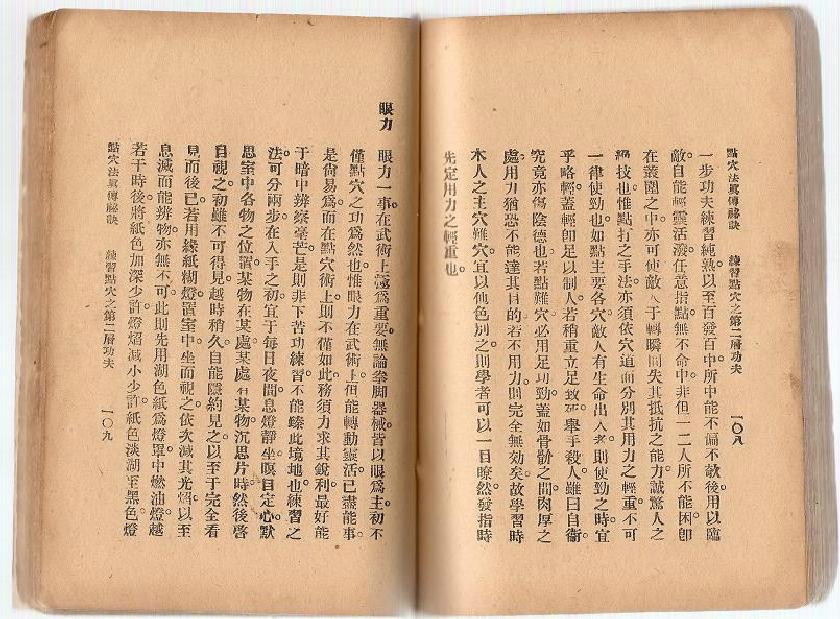 點穴法眞傳祕訣　練習點穴之第二層功夫　一〇八
一步功夫練習純熟以至百發百中所中能不偏不欹後用以臨
敵自能輕靈活潑任意指點無不命中非但一二人所不能困卽
在叢圍之中亦可使敵人于轉瞬間失其抵抗之能力誠驚人之
絕技也惟點打之手法亦須依穴道而分別其用力之輕重不可
一律使勁也如點主要各穴敵人有生命出入者則使勁之時宜
乎略輕蓋輕卽足以制人若稍重立足致死舉手殺人雖曰自衞
究竟亦傷陰德也若點難穴必用足功勁蓋如骨骱之間肉厚之
處用力猶恐不能達其目的若不用力則完全無効矣故學習時
木人之主穴難穴宜以他色別之則學者可以一目瞭然發指時
先定用力之輕重也。
眼力　眼力一事在武術上極爲重要無論拳脚器械皆以眼爲主初不
僅點穴之功爲然也惟眼力在武術上但能轉動靈活已盡能事。
是尙易爲而在點穴術上則不僅如此務須力求其銳利最好能
于暗中辨察毫芒是則非下苦功練習不能臻此境地也練習之
法可分兩步在入手之初宜于每日夜間息燈靜坐瞑目定心默
思室中各物之位置某物在某處某處有某物沉思片時然後啓
目視之初雖不可得見越時稍久自能隱約見之以至于完全看
見而後已若用綠紙糊燈置室中坐而視之依次減其光熖以至
息滅而能辨物亦無不可此則先用湖色紙爲燈罩中燃油燈越
若干時後將紙色加深少許燈熠減小少許紙色淡湖至黑色燈
點穴法眞傳祕訣　練習點穴之第二層功夫　一〇九